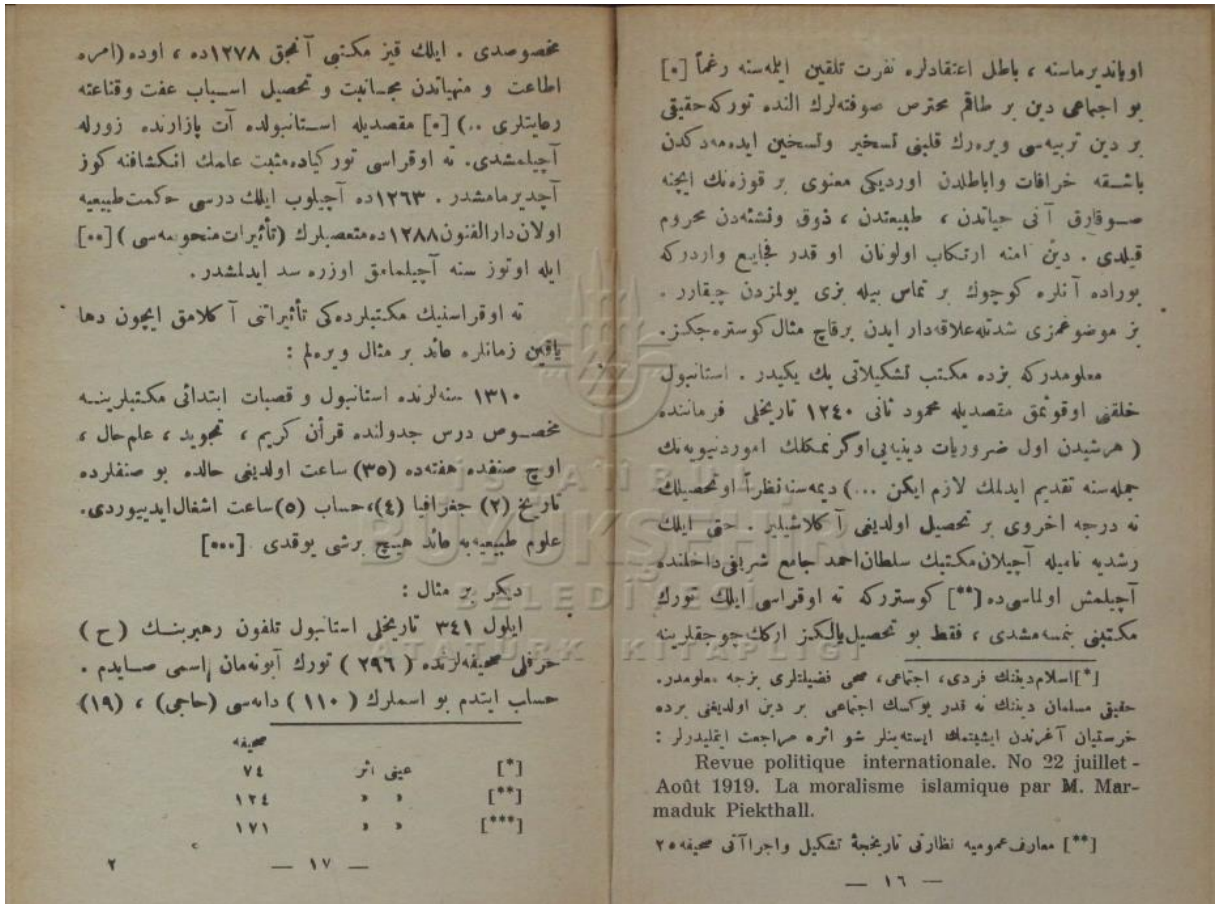 اویاندیرماسنه ، باطل اعتقادلره نفرت تلقین ایله‌سنه رغماً [*]
بو اجتماعی دین بر طاقم محترص صوفته‌لرك النده تورکه حقیقی
بر دین تربیه‌سی ویره‌رك قلبنی تسخیر وتسخین ایده‌مه‌دکدن
باشــقه خرافات واباطلدن اوردیکی معنوی بر قوزه‌نك ایچنه
صــوقارق آنی حیاتدن ، طبیعتدن ، ذوق ونشئه‌دن محروم
قیلدی . دین نامنه ارتکاب اولونان او قدر فجایع واردرکه
بوراده آنلره کوچوك بر تماس بیله بزی یولمزدن چیقارر .
بز موضوعمزی شدتله‌علاقه‌دار ایدن برقاچ مثال کوستره‌جکز.
معلومدرکه بزده مکتب تشکیلاتی پك یکیدر . استانبول
خلقنی اوقوتمق مقصدیله محمود ثانی ١٢٤٠ تاریخلی فرماننده
( هرشیدن اول ضروریات دینیه‌یی‌اوکرنمکلك اموردنیویه‌نك
جمله‌سنه تقدیم ایدلمك لازم ایکن ...) دیمه‌سنه‌نظراً اوتحصیلك
نه درجه اخروی بر تحصیل اولدیغی آکلاشیلیر . حتی ایلك
رشدیه نامیله آچیلان‌مکتبك سلطان‌احمد جامع شریفی‌داخلنده
آچیلمش اولماسی‌ده [**] کوسترركه ته اوقراسی ایلك تورك
مکتبنی بنمسه‌مشدی ، فقط بو تحصیل‌یالکز ارکك‌چوجقلرینه
[*]اسلام‌دیننك فردی، اجتماعی، صحی فضیلتلری بزجه معلومدر.
حقیقی مسلمان دیننك نه قدر یوکسك اجتماعی بر دین اولدیغنی برده
خرستیان آغزندن ایشیتمك ایسته‌ینلر شو اثره مراجعت ایتملیدرلر :
Revue politique internationale. No 22 juillet -
Août 1919. La moralisme islamique par M. Mar-
maduk Piekthall.
[**] معارف‌عمومیه نظارتی تاریخچهٔ تشکیل واجراآتی صحیفه ٢٥
— ١٦ —
مخصوصدی . ایلك قیز مکتبی آنجق ١٢٧٨ده ، اوده (امره
اطاعت و منهیاتدن مجــانبت و تحصیل اســباب عفت وقناعته
رعایتلری ..) [*] مقصدیله اســتانبولده آت پازارنده زورله
آچیلمشدی. ته اوقراسی تورکیاده‌مثبت علمك انکشافنه کوز
آچدیرمامشدر . ١٢٦٣ده آچیلوب ایلك درسی حکمت‌طبیعیه
اولان‌دارالفنون١٢٨٨ده‌متعصبلرك (تأثیرات‌منحوسه‌سی) [**]
ایله اوتوز سنه آچیلمامق اوزره سد ایدلمشدر .
ته اوقراسنیك مکتبلرده‌کی تأثیراتنی آکلامق ایچون دها
یاقین زمانلره عائد بر مثال ویره‌لم :
١٣١٠ سنه‌لرنده استانبول و قصبات ابتدائی مکتبلرینــه
مخصــوص درس جدولنده قرآن کریم ، تجوید ، علم‌حال ،
اوچ صنفده هفته‌ده (٣٥) ساعت اولدیغی حالده بو صنفلرده
تاریخ (٢) جغرافیا (٤)، حساب (٥) ساعت اشغال‌ایدییوردی.
علوم طبیعیه‌یه عائد هیــچ برشی یوقدی . [***]
دیکر بر مثال :
ایلول ٣٤١ تاریخلی استانبول تلفون رهبرینــك ( ح )
حرفلی صحیفه‌لرنده ( ٢٩٦ ) تورك آبونه‌مان اسمی صــایدم .
حساب ایتدم بو اسملرك ( ١١٠ ) دانه‌سی (حاجی) ، (١٩)
صحیفه
[*] عینی اثر ٧٤
[**] » » ١٢٤
[***] » » ١٧١
— ١٧ —
٢
İSTANBUL
BÜYÜKŞEHİR
BELEDİYESİ
ATATÜRK KİTAPLIĞI